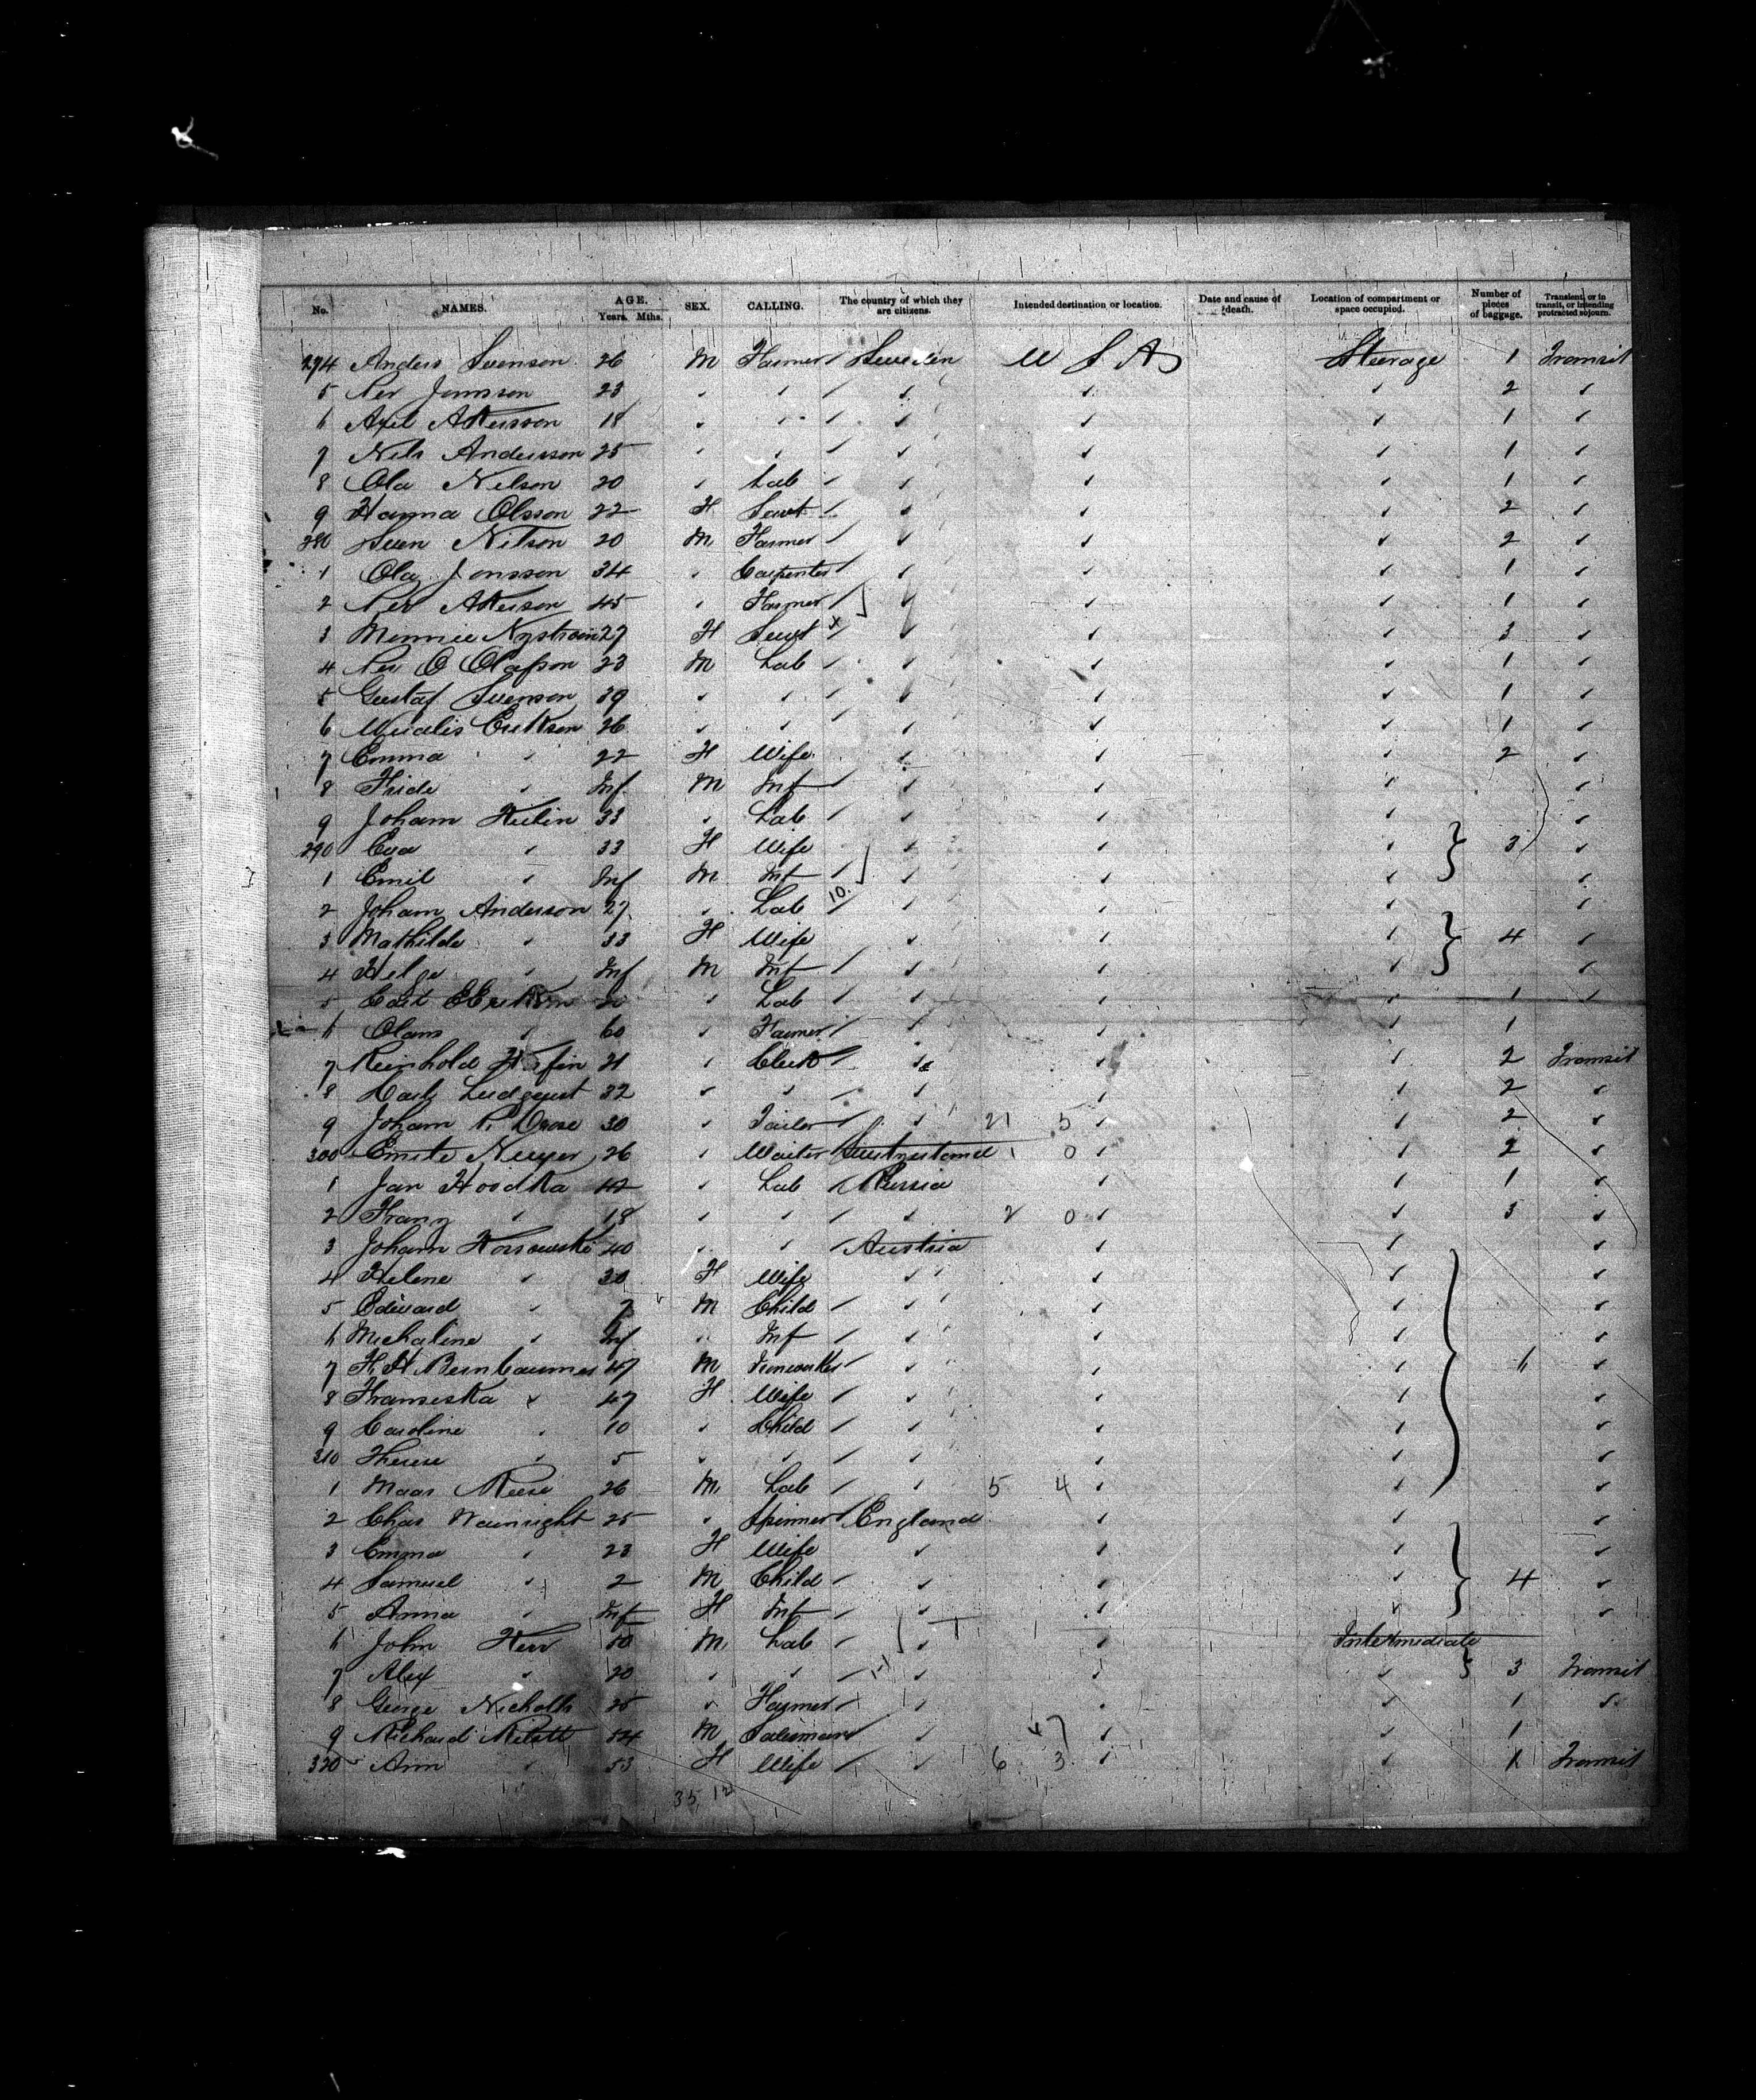 No. NAMES. AGE. Years. Mths. SEX. CALLING. The country of which they are citizens. Intended destination or location. Date and cause of death. Location of compartment or space occupied. Number of pieces of baggage. Transient, or in transit, or intending protracted sojourn.
274 Anders Svenson 26 M Farmer Sweden U S A Steerage 1 Transit
5 Per Jonsson 23 2
6 Axel Akesson 18 1
7 Nils Andersson 25 1
8 Ola Nelson 20 Lab 1
9 Hanna Olsson 22 F Servt 2
280 Sven Nilson 20 M Farmer 2
1 Ola Jonsson 34 Carpenter 1
2 Per Akeson 45 Farmer 1
3 Minnie Nystrom 27 F Servt 3
4 Per O Olafson 23 M Lab 1
5 Gustaf Svenson 39 1
6 Erikson 26 1
7 Emma 22 F Wife 2
8 Inf M Inf
9 Joham 33 Lab
290 Eva 33 F Wife 3
1 Emil Inf M Inf
2 Joham Anderson 27 Lab 10
3 Mathilde 33 F Wife 4
4 Helge Inf M Inf
5 Lab 1
6 60 Farmer 1
7 Reinhold 21 Clerk 2 Transit
8 32 2
9 Joham P. 30 Tailor 21 5 2
300 26 Waiter Switzerland 0 2
1 Jan Hoodka 42 Lab Russia 1
2 Franz 18 2 0 3
3 Joham 40 Austria
4 Helene 30 F Wife
5 Edward 7 M Child
6 Michaline Inf Inf
7 47 M Ironworker 6
8 Franseska 47 F Wife
9 Caroline 10 Child
310 Therese 5
1 26 M Lab 5 4
2 Chas Wainright 25 Spinner England
3 Emma 23 F Wife
4 Samuel 2 M Child 4
5 Anna Inf F Inf
6 John Kerr 50 M Lab Intermediate
7 Alex 20 3 Transit
8 George Nicholls 25 Farmer 1
9 Richard 54 M Salesman 47 1
320 Ann 53 F Wife 6 3 1 Transit
35 12